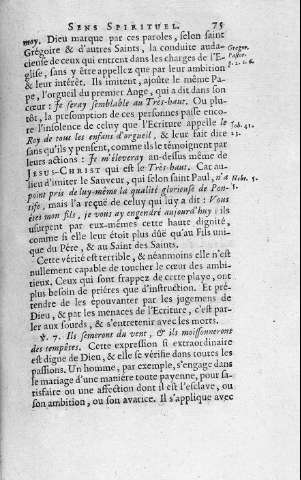 SENS SPIRITUEL. 75
moy. Dieu marque par ces paroles, selon saint
Grégoire & d'autres Saints, la conduite auda-
cieuse de ceux qui entrent dans les charges de l'E-
glise, sans y être appellez que par leur ambition
& leur intérêt. Ils imitent, ajoûte le même Pa-
pe, l'orgueil du premier Ange, qui a dit dans son
cœur : Je seray semblable au Très-haut. Ou plu-
tôt, la présomption de ces personnes passe enco-
re l'insolence de celuy que l'Ecriture appelle le
Roy de tous les enfans d'orgueil, & leur fait dire
sans qu'ils y pensent, comme ils le témoignent par
leurs actions : Je m'éleveray au-dessus même de
JESUS-CHRIST qui est le Très-haut. Car au-
lieu d'imiter le Sauveur, qui selon saint Paul, n'a
point pris de luy-même la qualité glorieuse de Pon-
tife, mais l'a reçuë de celuy qui luy a dit : Vous
êtes mon fils, je vous ay engendré aujourd'huy ; ils
usurpent par eux-mêmes cette haute dignité,
comme si elle leur étoit plus dûë qu'au Fils uni-
que du Père, & au Saint des Saints.
Cette vérité est terrible, & néanmoins elle n'est
nullement capable de toucher le cœur des ambi-
tieux. Ceux qui sont frappez de cette playe, ont
plus besoin de prières que d'instruction. Et pré-
tendre de les épouvanter par les jugemens de
Dieu, & par les menaces de l'Ecriture, c'est par-
ler aux sourds, & s'entretenir avec les morts.
℣. 7. Ils semeront du vent, & ils moissonneront
des tempêtes. Cette expression si extraordinaire
est digne de Dieu, & elle se vérifie dans toutes les
passions. Un homme, par exemple, s'engage dans
le mariage d'une manière toute payenne, pour sa-
tisfaire ou une affection dont il est l'esclave, ou
son ambition, ou son avarice. Il s'applique avec
Gregor.
Pastor.
Job. 41.
Hebr. 5.
5.